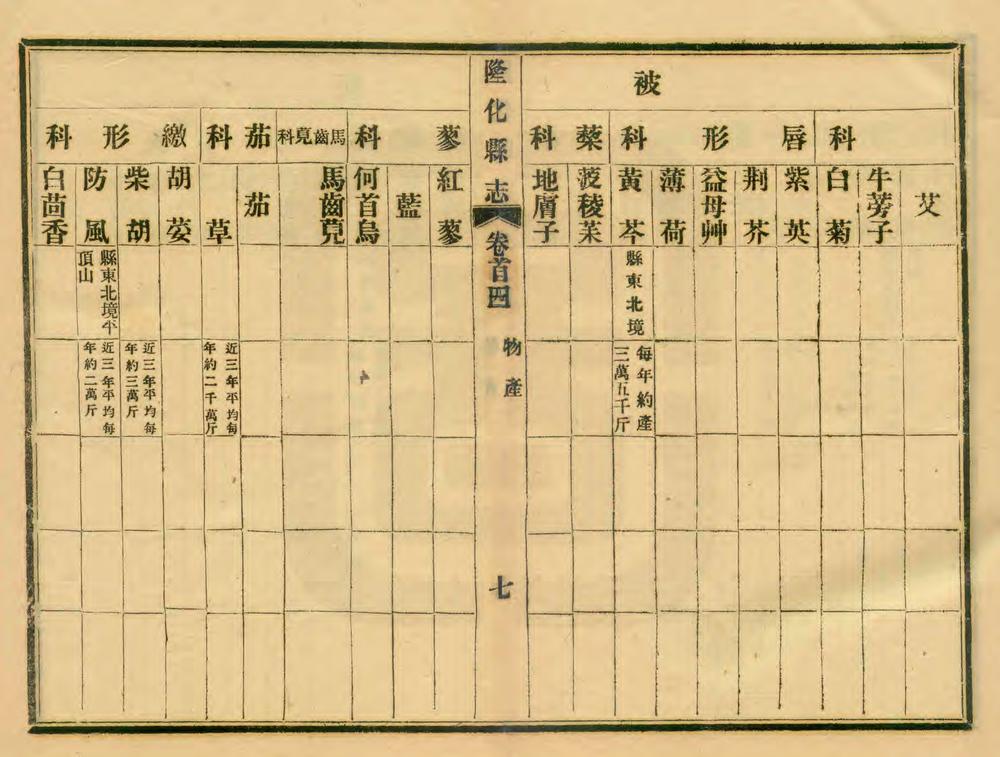 被
科
艾
牛蒡子
白菊
唇形科
紫英
荆芥
益母艸
薄荷
黃芩
縣東北境
每年約產
三萬五千斤
藜科
菠稜茉
地膚子
隆化縣志
卷首四
物產
七
蓼科
紅蓼
藍
何首烏
馬齒莧科
馬齒莧
茄科
茄
草
近三年平均每
年約二千萬斤
繖形科
胡荽
柴胡
近三年平均每
年約三萬斤
防風
縣東北境平
頂山
近三年平均每
年約二萬斤
白茴香